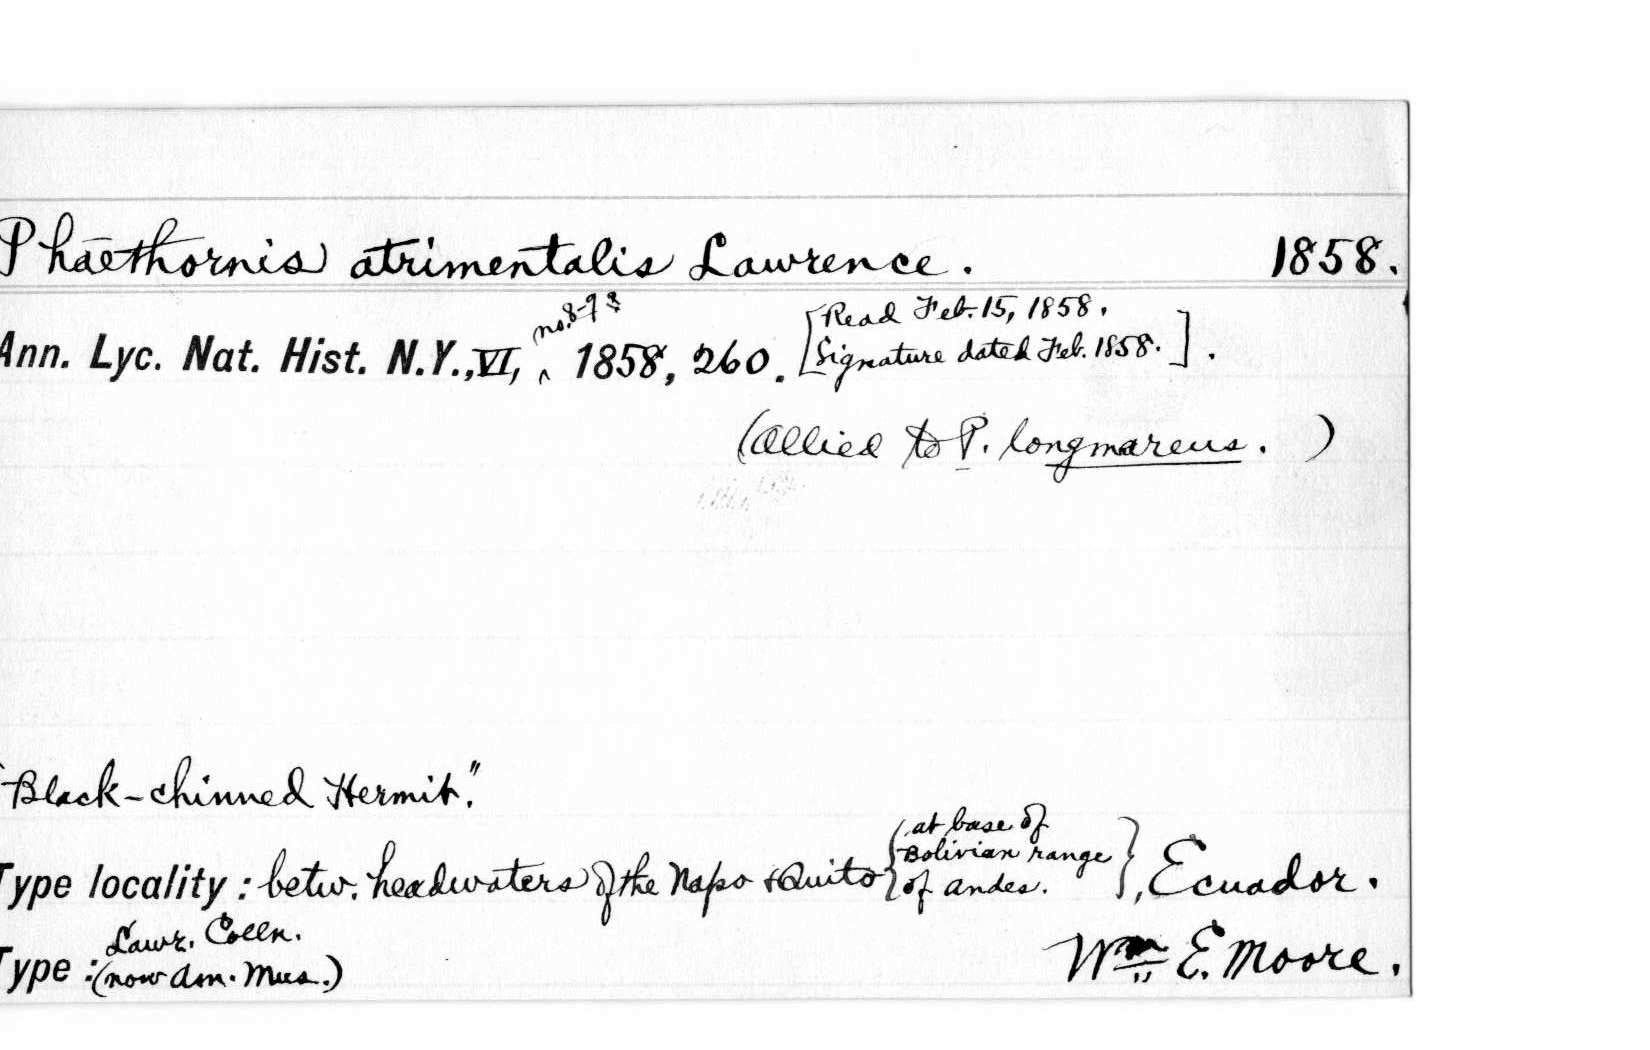 Phaëthornis atrimentalis Lawrence. 1858.
Ann. Lyc. Nat. Hist. N.Y., VI, no. 8-9 1858, 260. [Read Feb. 15, 1858.
Signature dated Feb. 1858.].
(Allied to P. longmareus. )
"Black-chinned Hermit."
Type locality: betw. headwaters of the Napo + Quito {(at base of
Bolivian range
of Andes. }, Ecuador.
Type: Lawr. Colln.
(now Am. Mus.) Wm E. Moore.